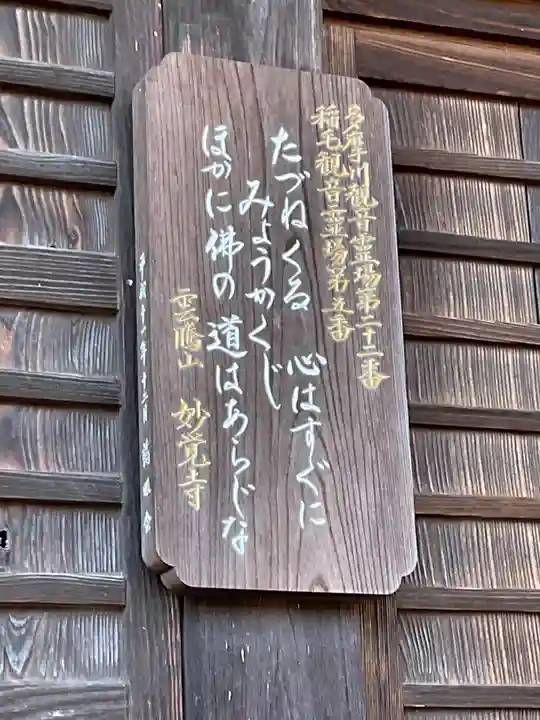 多摩川観音霊場第二十二番
稲毛観音霊場第五番
たづねくる 心はすぐに
みょうかくじ
ほかに佛の道はあらじな
雲騰山 妙覚寺